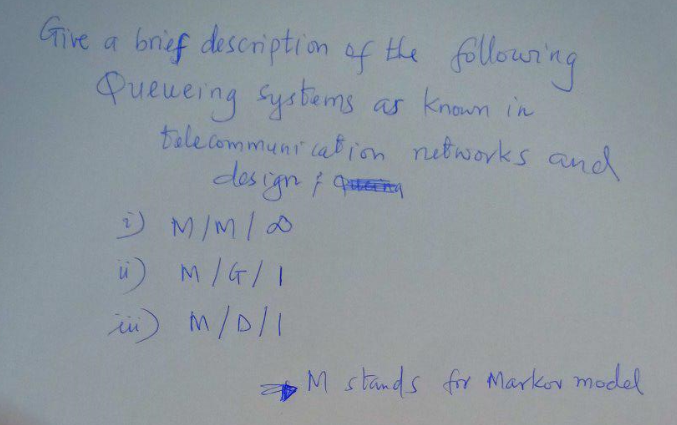 Give a brief description of the following
Queueing systems as known in
telecommunication networks and
design ;
i) M/M/∞
ii) M/G/1
iii) M/D/1
→ M stands for Markov model